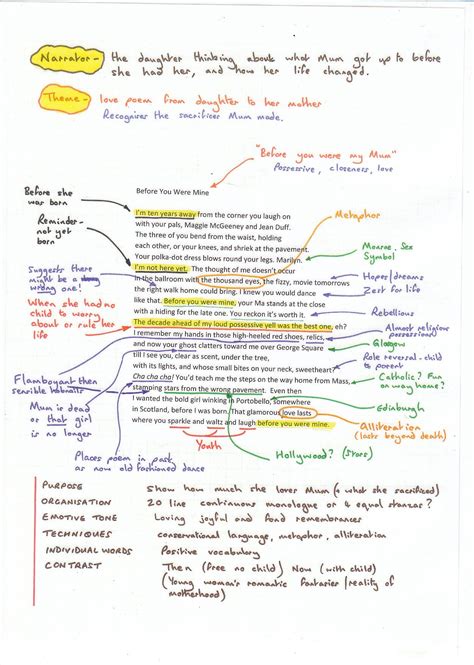 Narrator - the daughter thinking about what Mum got up to before
she had her, and how her life
changed.
Theme - love poem from daughter to her mother
Recognises the sacrifices Mum made.
"Before
you were my Mum"
Possessive, closeness, love
Before she
was born
Before You Were Mine
Metaphor
Reminder -
not yet
born
I'm ten years away from the corner you laugh on
with your pals, Maggie McGeeney and Jean Duff.
The three of you bend from the waist, holding
each other, or your knees, and shriek at the pavement.
Your polka-dot dress blows round your legs. Marilyn.
Monroe. Sex
Symbol
I'm not here yet. The thought of me doesn't occur
in the ballroom with the thousand eyes, the fizzy, movie tomorrows
the right walk home could bring. I knew you would dance
like that. Before you were mine, your Ma stands at the close
with a hiding for the late one. You reckon it's worth it.
Suggests there
might be a
wrong one!
Hopes/dreams
Zest for life
Rebellious
When she had no
child to worry
about or rule her
life
The decade ahead of my loud possessive yell was the best one, eh?
I remember my hands in those high-heeled red shoes, relics,
and now your ghost clatters toward me over George Square
till I see you, clear as scent, under the tree,
with its lights, and whose small bites on your neck, sweetheart?
Almost religious
possessions!
Glasgow
Role reversal - child
to parent
Flamboyant then
sensible hobnails
Cha cha cha! You'd teach me the steps on the way home from Mass,
stamping stars from the wrong pavement. Even then
I wanted the bold girl winking in Portobello, somewhere
in Scotland, before I was born. That glamorous love lasts
where you sparkle and waltz and laugh before you were mine.
Catholic? Fun
on way home?
Edinburgh
Mum is dead
or that girl
is no longer
Alliteration
(lasts beyond death)
Youth
Hollywood? (Stars)
Places poem in past
as now old fashioned dance
PURPOSE Show how much she loves Mum (& what she sacrificed)
ORGANISATION 20 line continuous monologue or 4 equal stanzas?
EMOTIVE TONE Loving joyful and fond remembrances
TECHNIQUES conservational language, metaphor, alliteration
INDIVIDUAL WORDS Positive vocabulary
CONTRAST Then (Free no child) Now (with child)
(Young woman's romantic fantasies/reality of
motherhood)